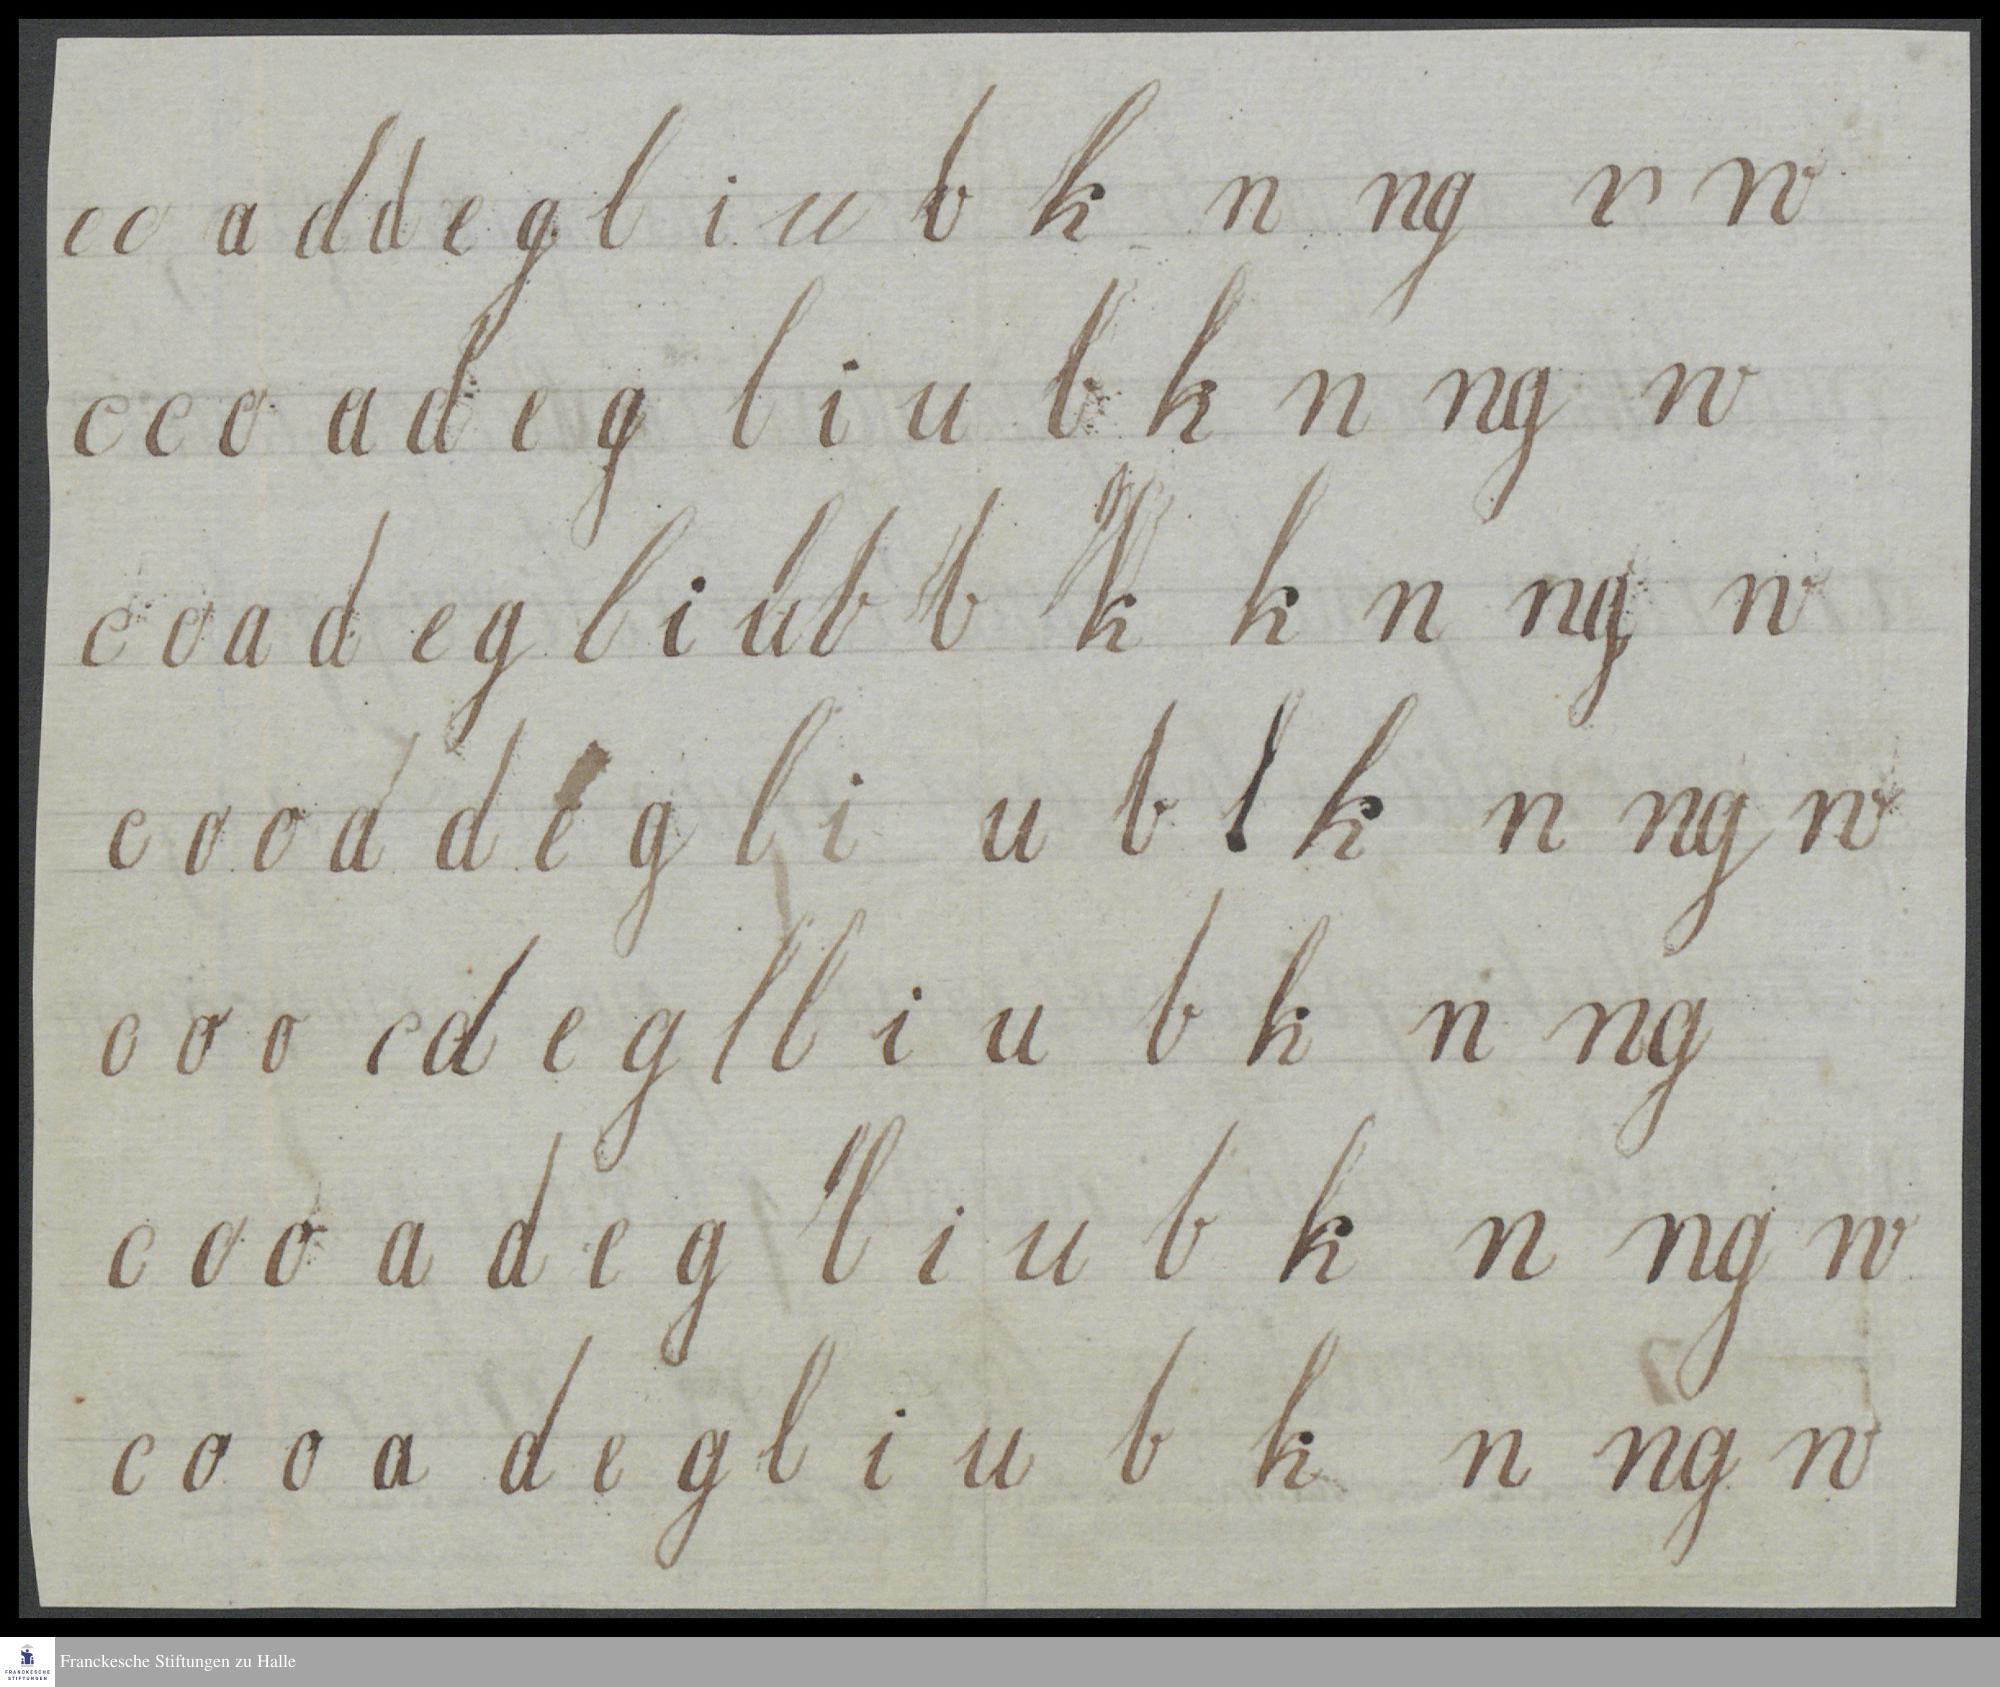 c o a d d e g l i u b k n ng v w
c c o a d e g l i u b k n ng w
c o a d e g l i u b b k k n ng w
c o o a d e g l i u b l k n ng w
o o o c d e g l l i u b k n ng
c o o a d e g l i u b k n ng w
c o o a d e g l i u b k n ng w
Franckesche Stiftungen zu Halle
FRANCKESCHE
STIFTUNGEN